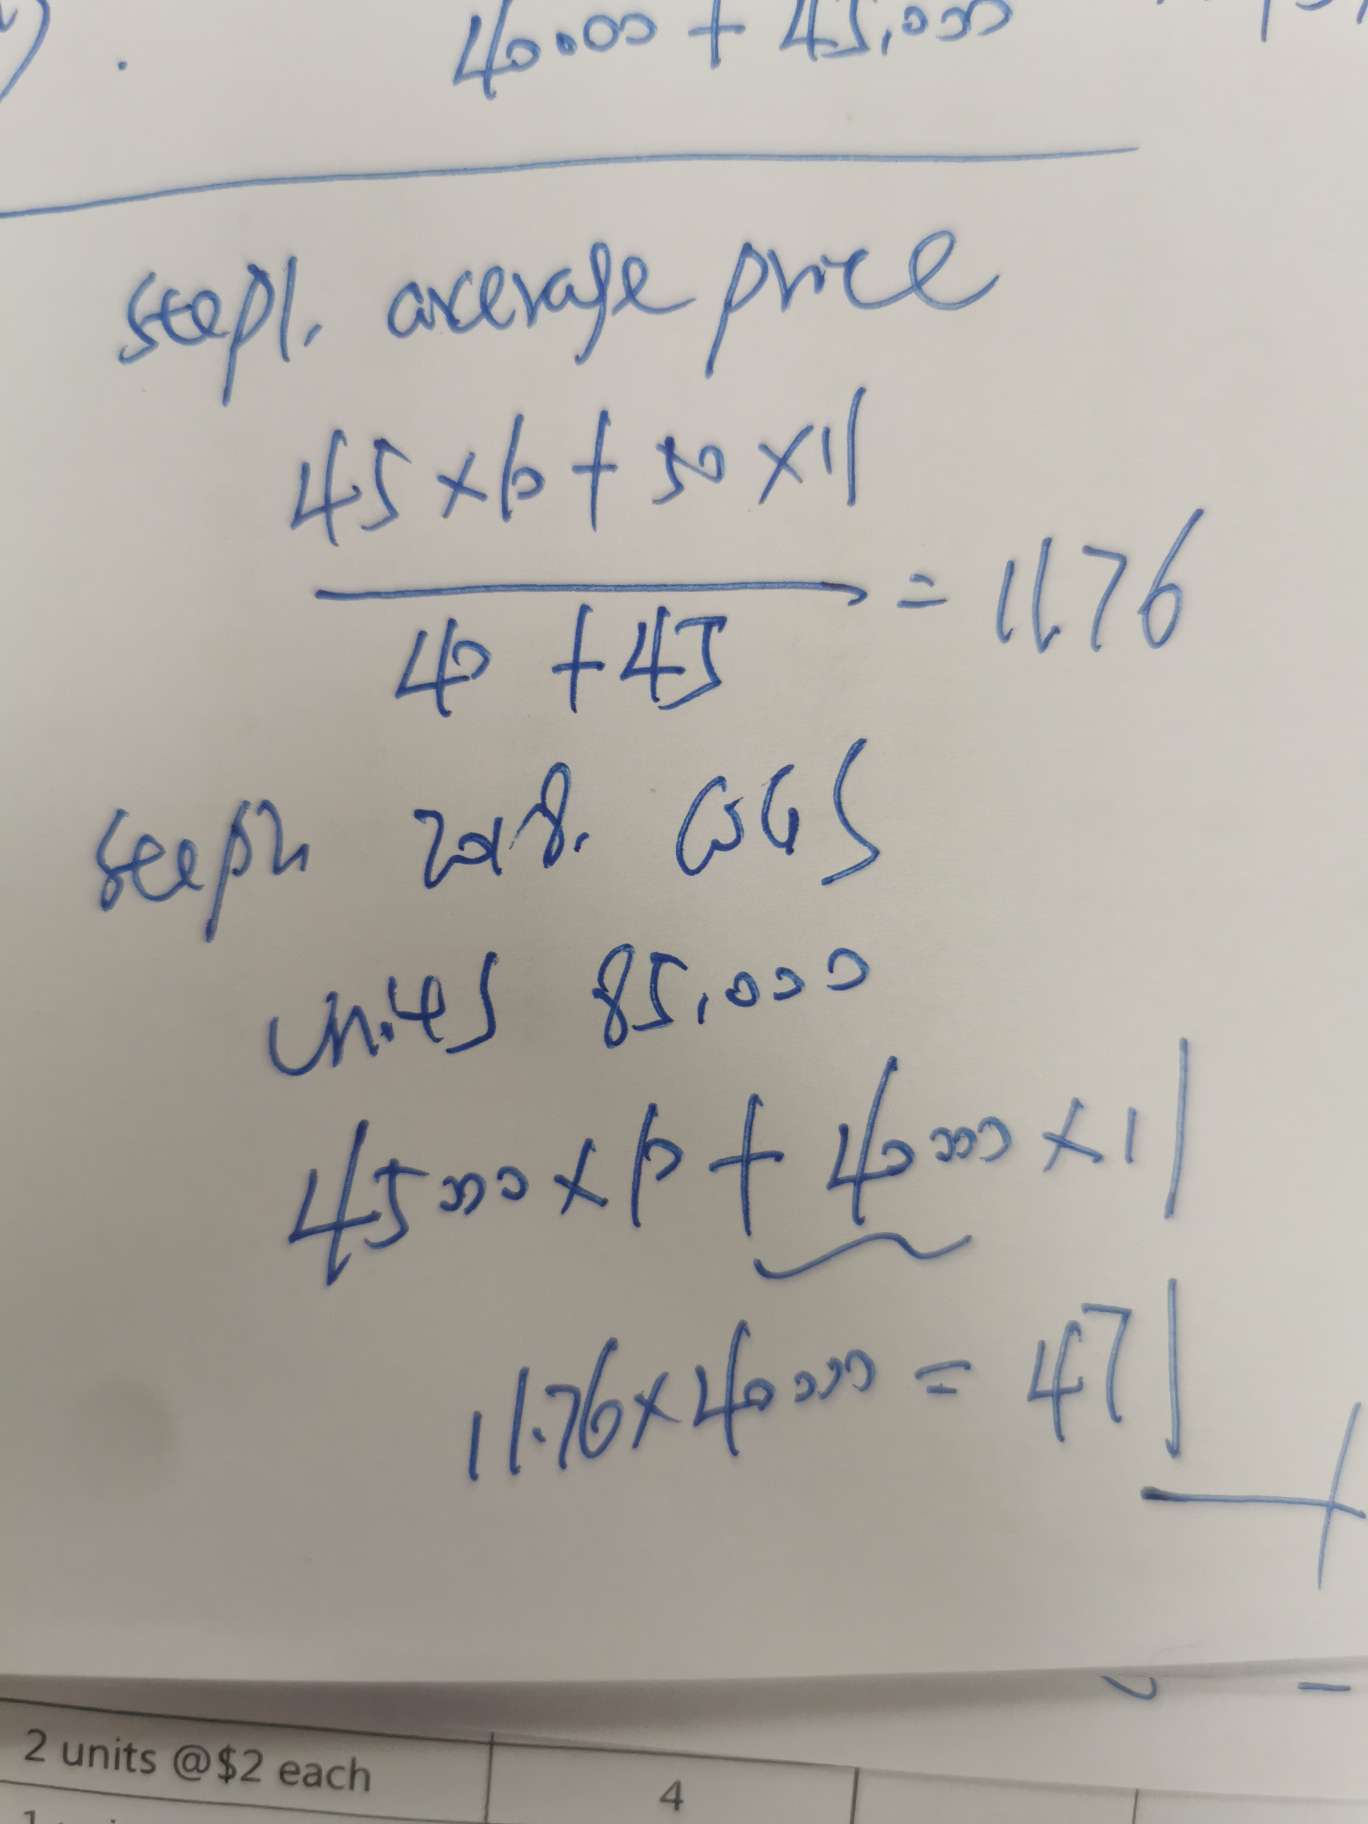 40.000 + 45,000
step1. average price
45 × 10 + 50 × 11
40 + 45
= 11.76
step2 2018. COGS
units 85,000
45000 × 10 + 40000 × 11
11.76 × 40000 = 471
2 units @$2 each
4